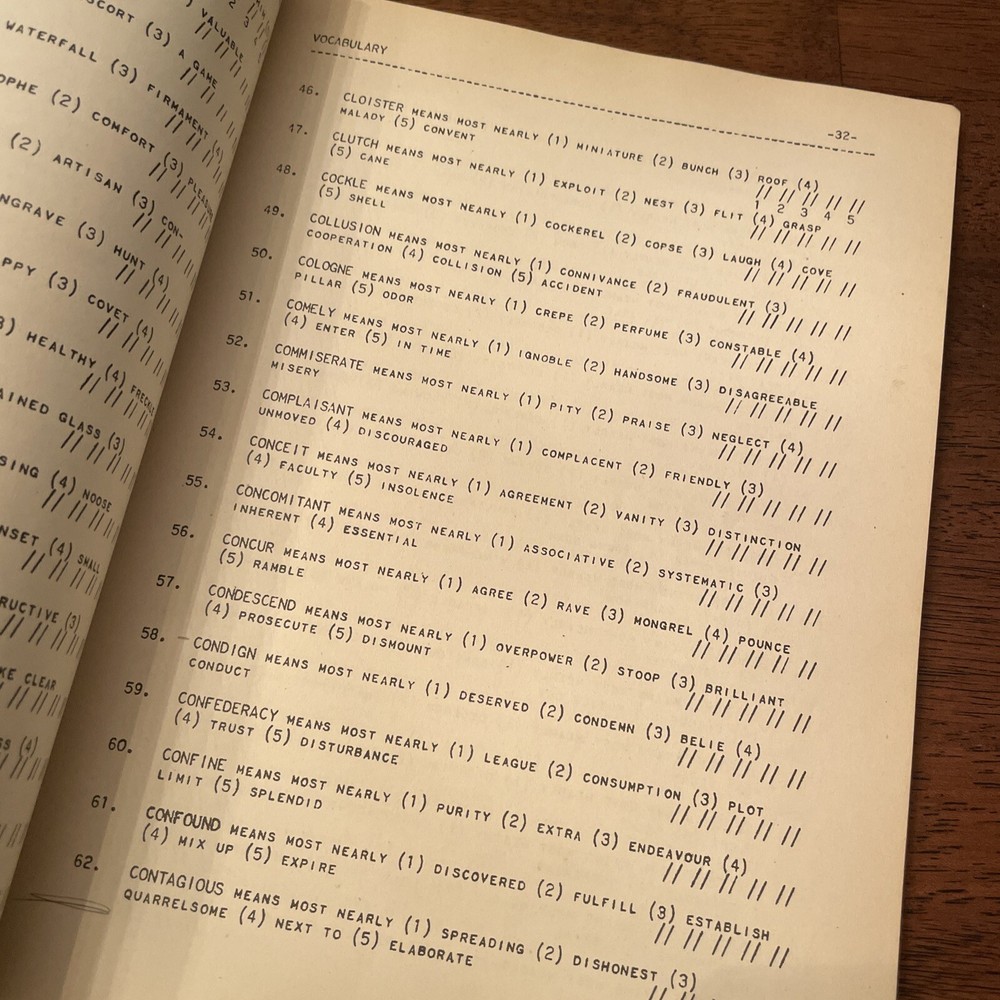 SCORT (3) A GAME
VALUABLE
WATERFALL (3) FIRMAMENT (4)
OPHE (2) COMFORT (3)
(2) ARTISAN (3) CON-
NGRAVE (3) HUNT (4)
PPY (3) COVET (4)
3) HEALTHY (4) FRECKLE
AINED GLASS (3)
SING (4) NOOSE
NSET (4) SMALL
RUCTIVE (3)
KE CLEAR
SS (4)
VOCABULARY
-32-
46. CLOISTER MEANS MOST NEARLY (1) MINIATURE (2) BUNCH (3) ROOF (4)
MALADY (5) CONVENT
1 2 3 4 5
47. CLUTCH MEANS MOST NEARLY (1) EXPLOIT (2) NEST (3) FLIT (4) GRASP
(5) CANE
48. COCKLE MEANS MOST NEARLY (1) COCKEREL (2) COPSE (3) LAUGH (4) COVE
(5) SHELL
49. COLLUSION MEANS MOST NEARLY (1) CONNIVANCE (2) FRAUDULENT (3)
COOPERATION (4) COLLISION (5) ACCIDENT
50. COLOGNE MEANS MOST NEARLY (1) CREPE (2) PERFUME (3) CONSTABLE (4)
PILLAR (5) ODOR
51. COMELY MEANS MOST NEARLY (1) IGNOBLE (2) HANDSOME (3) DISAGREEABLE
(4) ENTER (5) IN TIME
52. COMMISERATE MEANS MOST NEARLY (1) PITY (2) PRAISE (3) NEGLECT (4)
MISERY
53. COMPLAISANT MEANS MOST NEARLY (1) COMPLACENT (2) FRIENDLY (3)
UNMOVED (4) DISCOURAGED
54. CONCEIT MEANS MOST NEARLY (1) AGREEMENT (2) VANITY (3) DISTINCTION
(4) FACULTY (5) INSOLENCE
55. CONCOMITANT MEANS MOST NEARLY (1) ASSOCIATIVE (2) SYSTEMATIC (3)
INHERENT (4) ESSENTIAL
56. CONCUR MEANS MOST NEARLY (1) AGREE (2) RAVE (3) MONGREL (4) POUNCE
(5) RAMBLE
57. CONDESCEND MEANS MOST NEARLY (1) OVERPOWER (2) STOOP (3) BRILLIANT
(4) PROSECUTE (5) DISMOUNT
58. CONDIGN MEANS MOST NEARLY (1) DESERVED (2) CONDEMN (3) BELIE (4)
CONDUCT
59. CONFEDERACY MEANS MOST NEARLY (1) LEAGUE (2) CONSUMPTION (3) PLOT
(4) TRUST (5) DISTURBANCE
60. CONFINE MEANS MOST NEARLY (1) PURITY (2) EXTRA (3) ENDEAVOUR (4)
LIMIT (5) SPLENDID
61. CONFOUND MEANS MOST NEARLY (1) DISCOVERED (2) FULFILL (3) ESTABLISH
(4) MIX UP (5) EXPIRE
62. CONTAGIOUS MEANS MOST NEARLY (1) SPREADING (2) DISHONEST (3)
QUARRELSOME (4) NEXT TO (5) ELABORATE